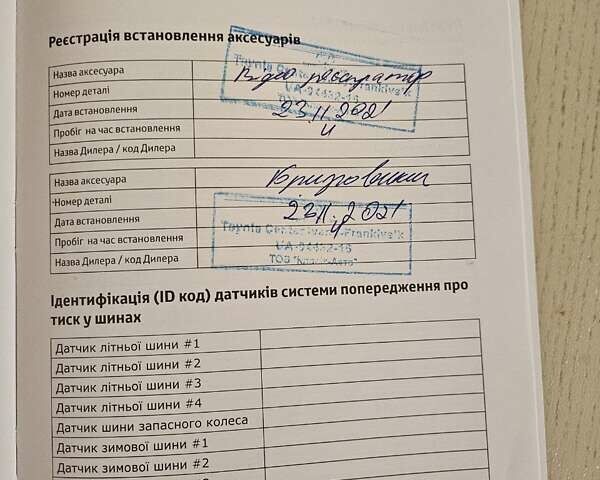 Реєстрація встановлення аксесуарів
Назва аксесуара Відео реєстратор
Номер деталі
Дата встановлення 23.11.2021
Пробіг на час встановлення 4
Назва Дилера / код Дилера
Toyota Center Ivano-Frankivs'k
UA-04432-16
Назва аксесуара Бризговики
Номер деталі
Дата встановлення 23.11.2021
Пробіг на час встановлення 4
Назва Дилера / код Дилера
Toyota Center Ivano-Frankivs'k
UA-04432-16
Ідентифікація (ID код) датчиків системи попередження про
тиск у шинах
Датчик літньої шини #1
Датчик літньої шини #2
Датчик літньої шини #3
Датчик літньої шини #4
Датчик шини запасного колеса
Датчик зимової шини #1
Датчик зимової шини #2